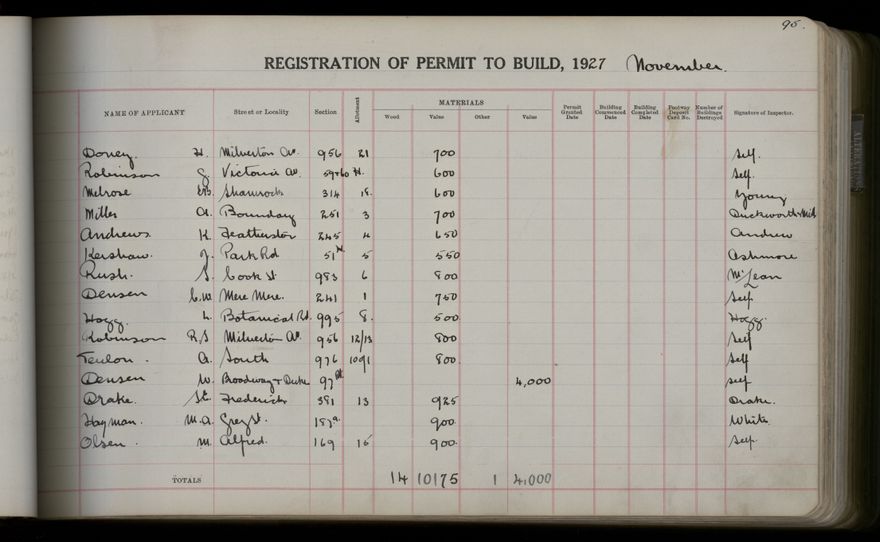 95.
REGISTRATION OF PERMIT TO BUILD, 1927 November.
NAME OF APPLICANT Street or Locality Section Allotment MATERIALS Wood Value Other Value Permit Granted Date Building Commenced Date Building Completed Date Footway Deposit Card No. Number of Buildings Destroyed Signature of Inspector.
Doney. H. Milverton Av. 956 21 700 Self.
Robinson J. Victoria Av. 59+60 H. 600 Self.
Melrose Shamrock 314 18. 600 Young
Miller A. Boundary 251 3 700 Duckworth
Andrews K. Featherston 245 4 650 Andrew
Kershaw. J. Park Rd 51 5 550 Ashmore
Rush. S. Cook St 983 6 800 McLean
Densen C.W. Mere Mere. 241 1 750 Self
Hogg. L. Botanical Rd. 995 8. 500 Hogg.
Robinson R.S Milverton Av. 956 12/13 800 Self
Teulon. A. South 976 800. Self
Densen W. Broadway + Duke 97 4,000 Self
Drake. Frederick 381 13 925 Drake.
Hayman. M.A. Grey St. 187a. 900. White
Olsen. M. Alfred. 169 15 900. Self.
TOTALS 14 10175 1 4,000